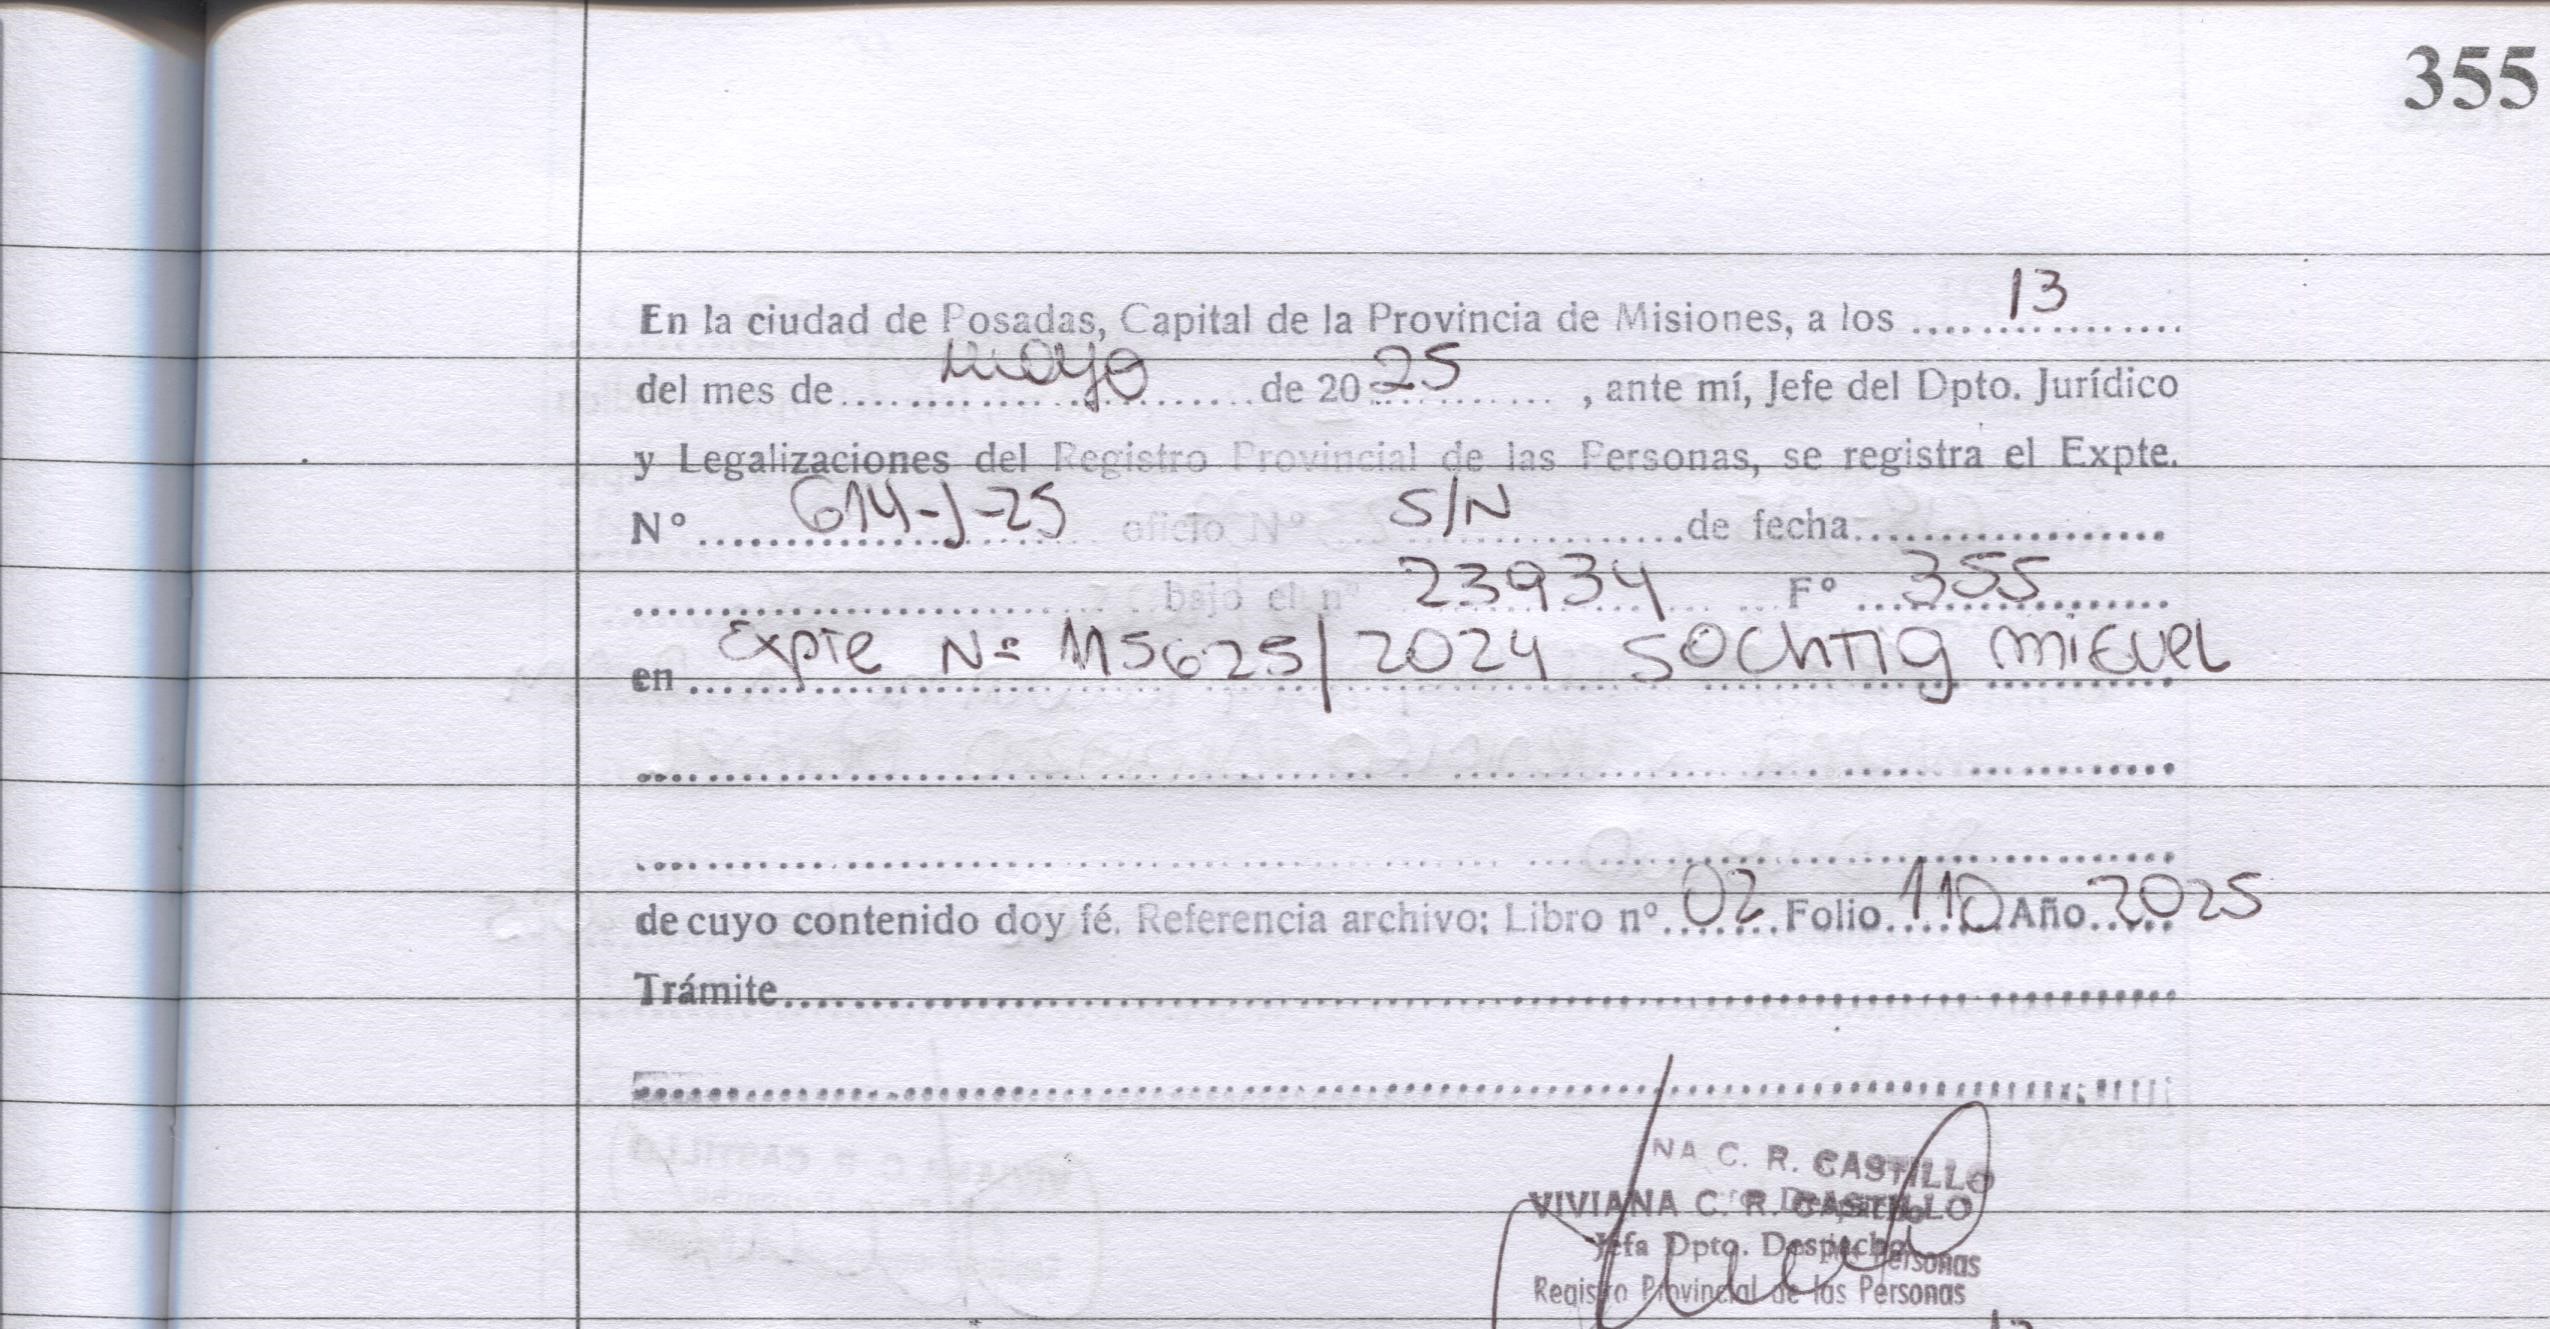 355
En la ciudad de Posadas, Capital de la Provincia de Misiones, a los 13
del mes de mayo de 20 25, ante mí, Jefe del Dpto. Jurídico
y Legalizaciones del Registro Provincial de las Personas, se registra el Expte.
N° 614-J-25 oficio N° S/N de fecha
bajo el n° 23934 F° 355
en Expte Nº 115625/2024 Sochtig Miguel
de cuyo contenido doy fé. Referencia archivo: Libro n° 02 Folio 110 Año 2025
Trámite
NA C. R. CASTILLO
VIVIANA C. R. CASTILLO
Jefa Dpto. Despacho
Personas
Registro Provincial de las Personas